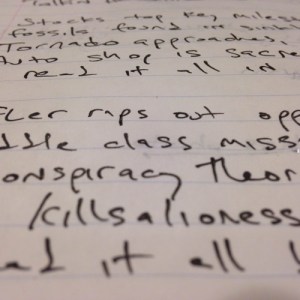 Stocks top key miles
fossils found in
Tornado approaches,
Auto shop is sacre
read it all in
fler raps out opp
ddle class miss
onspiracy theor
/killsalioness
ad it all